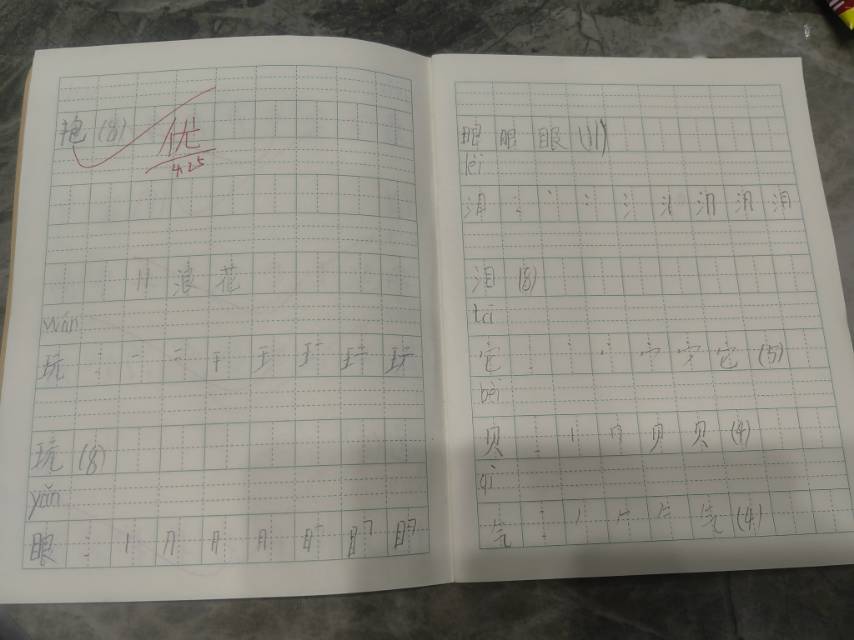 抱(8) 优
4.25
11 浪花
wán
玩：一 二 干 王 王 玩 玩
玩(8)
yǎn
眼：丨 冂 月 月 目
眼 眼 眼 (11)
lèi
泪：丶 冫 氵 泪 泪 泪
泪(8)
tā
它：丶 宀 它 (5)
bèi
贝：丨 冂 贝 贝 (4)
qì
气：丿 𠂉 气 (4)